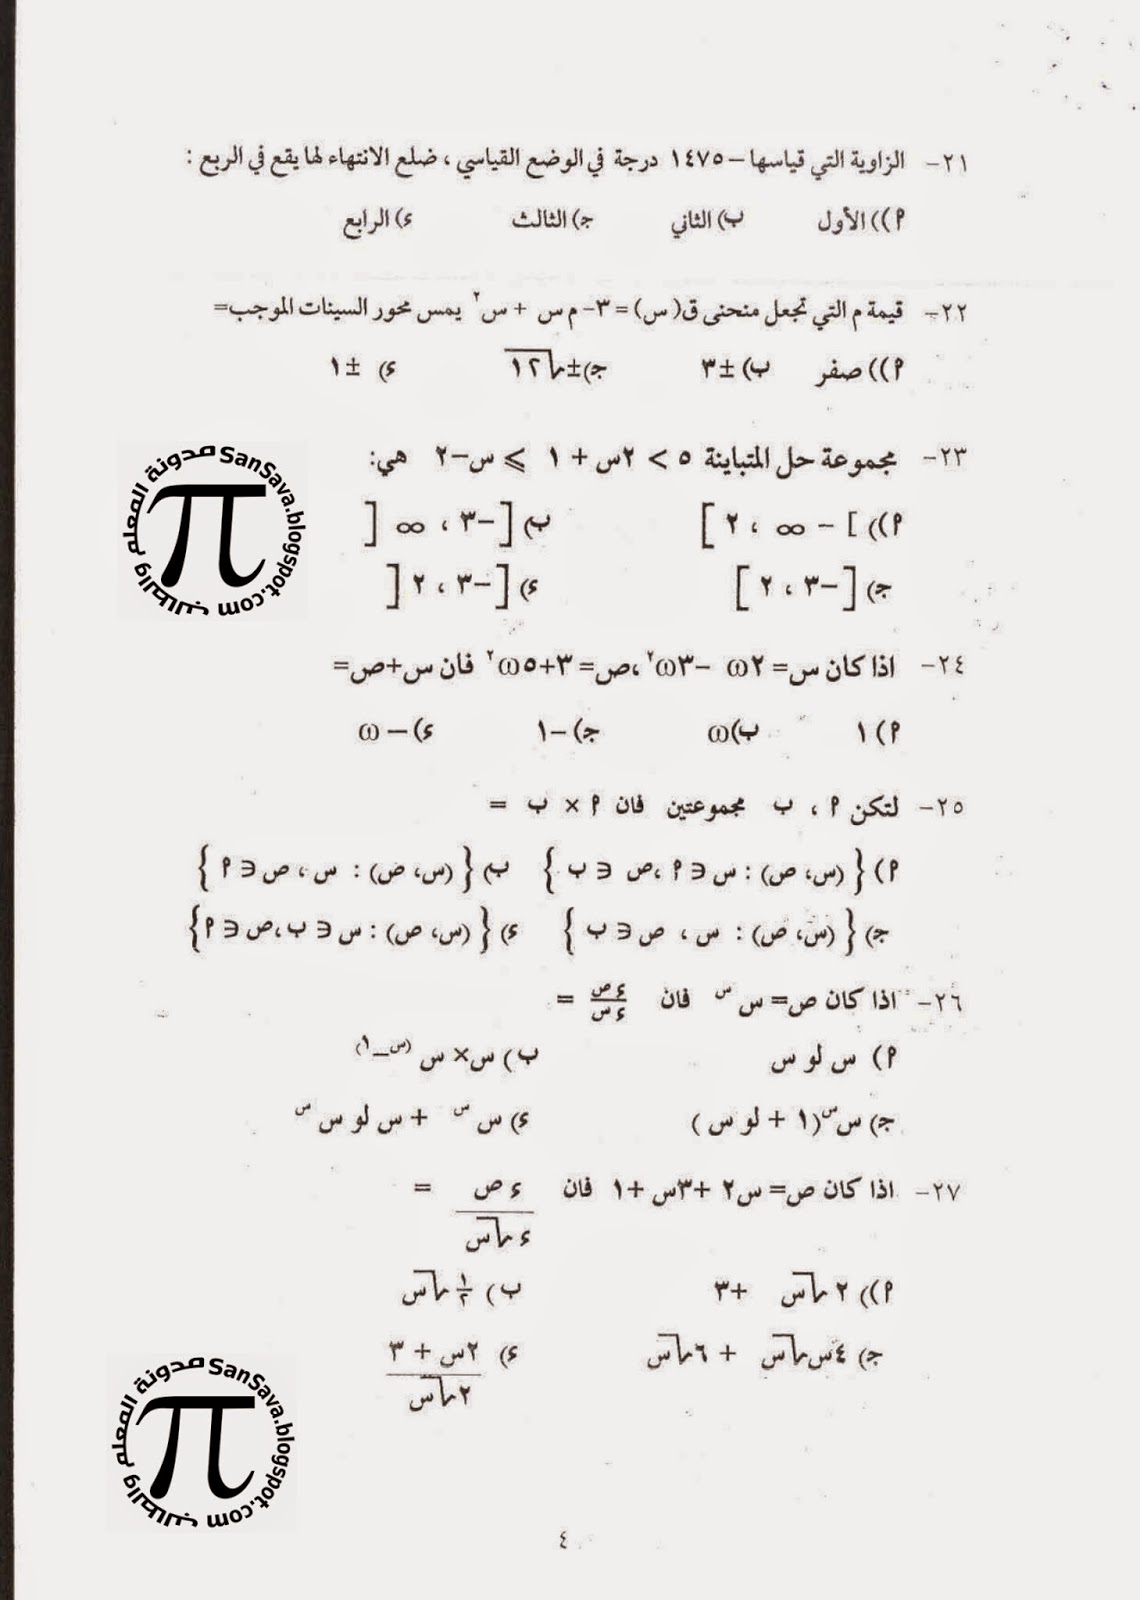 ٢١- الزاوية التي قياسها -١٤٧٥ درجة في الوضع القياسي ، ضلع الانتهاء لها يقع في الربع :
أ)) الأول ب) الثاني ج) الثالث ء) الرابع
٢٢- قيمة م التي تجعل منحنى ق(س) = ٣- م س + س² يمس محور السينات الموجب=
أ)) صفر ب) ±٣ ج) ±√١٢ ء) ±١
٢٣- مجموعة حل المتباينة ٥ > ٢س + ١ ⩾ س-٢ هي:
أ)) ] - ∞ ، ٢ ] ب) [ -٣ ، ∞ [
ج) [ -٣ ، ٢ ] ء) [ -٣ ، ٢ [
٢٤- اذا كان س= ٢ω -٣ω² ،ص= ٣+٥ω² فان س+ص=
أ) ١ ب) ω ج) -١ ء) -ω
٢٥- لتكن أ ، ب مجموعتين فان أ × ب =
أ) { (س، ص) : س ∈ أ ،ص ∈ ب } ب) { (س، ص) : س ، ص ∈ أ }
ج) { (س، ص) : س ، ص ∈ ب } ء) { (س، ص) : س ∈ ب ،ص ∈ أ }
٢٦- اذا كان ص= س^س فان ءص/ءس =
أ) س لو س ب) س× س^(س-١)
ج) س^س (١ + لو س ) ء) س^س + س لو س^س
٢٧- اذا كان ص= س٢ +٣س +١ فان ء ص / ء√س =
أ)) ٢√س +٣ ب) ١/٢ √س
ج) ٤س√س + ٦√س ء) ٢س + ٣ / ٢√س
مدونة المعلم والطالب SanSava.blogspot.com
π
مدونة المعلم والطالب SanSava.blogspot.com
π
٤